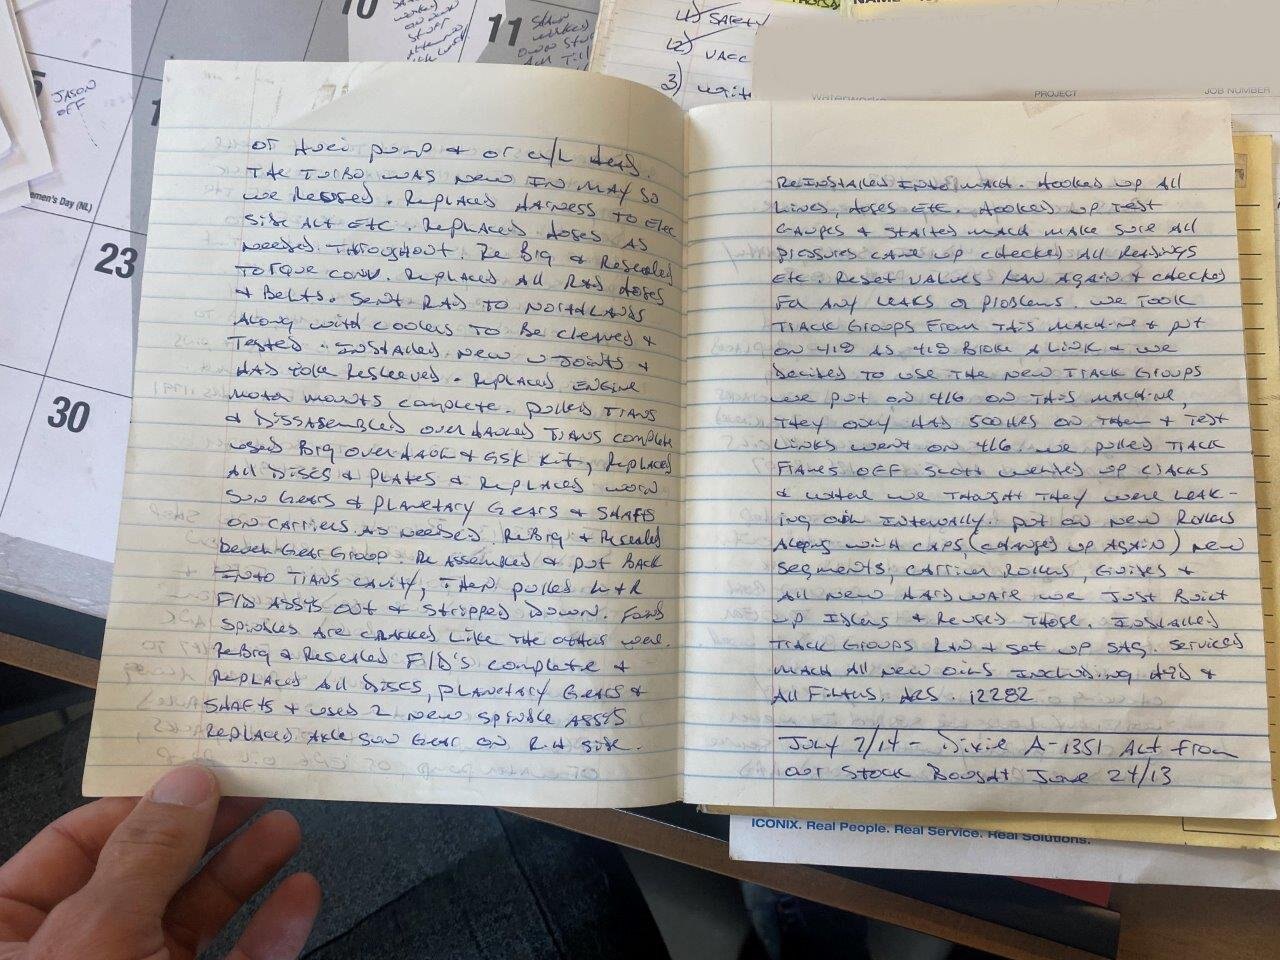 10
11
JASON
OFF
men's Day (NL)
23
30
4) SAFETY
2) VACC
3) write
NAME
Waterworks
PROJECT
JOB NUMBER
OF Huei pump & OF a/L Head.
THE TURBO WAS NEW IN MAY SO
we Resused. Replaced Harness to Elec
Side Alt Etc. Replaced Hoses AS
Needed Throughout. Re Brg & Resealed
Torque conv. Replaced All RAD Hoses
& Belts. Sent RAD TO Northlands
Along with coolers to Be cleaned &
Tested. Installed New U Joints &
HAD Yoke Resleeved. Replaced Engine
Motor mounts complete. Pulled TRANS
& Dissasembled overhauled TRANS complete
used Brg overhaul & GSK Kit, Replaced
All Discs & Plates & Replaced worn
Sun Gears & Planetary Gears & SHAFTS
on carriers as needed. ReBrg & Resealed
Bevel Gear Group. Re Assembled & put BACK
INTO TRANS CAVITY, THEN pulled L+R
F/D Assys out & stripped Down. Found
Spindles Are cracked Like The others were.
ReBrg & Resealed F/D's complete &
Replaced All Discs, Planetary Gears &
SHAFTS & used 2 New spindle Assys
Replaced Axle Sun Gear on R.H side.
ReInstalled Into Mach. Hooked up All
Lines, Hoses Etc. Hooked up Test
Gauges & started Mach make sure All
pressures came up checked All Readings
Etc. Reset values RAN Again & checked
For Any Leaks or Problems. we Took
Track Groups From This Machine & put
on 418 AS 418 Broke A Link & we
Decided to use the New Track Groups
we put on 416 on This Machine,
They only HAD 500 HRS on Them & Test
Links went on 416. we pulled TRACK
Frames OFF Scott welded up cracks
& where we thought they were Leak-
ing oil Internally. put on new Rollers
Along with caps (changed up Again) new
Segments, Carrier Rollers, Guides &
All new Hardware we Just Built
up Idlers & Reused Those. Installed
Track Groups RAN & Set up SAG. Serviced
Mach All New oils Including Hyd &
All Filters. HRS. 12282
July 2/14 - Dixie A-1351 Alt from
our Stock Bought June 24/13
ICONIX. Real People. Real Service. Real Solutions.